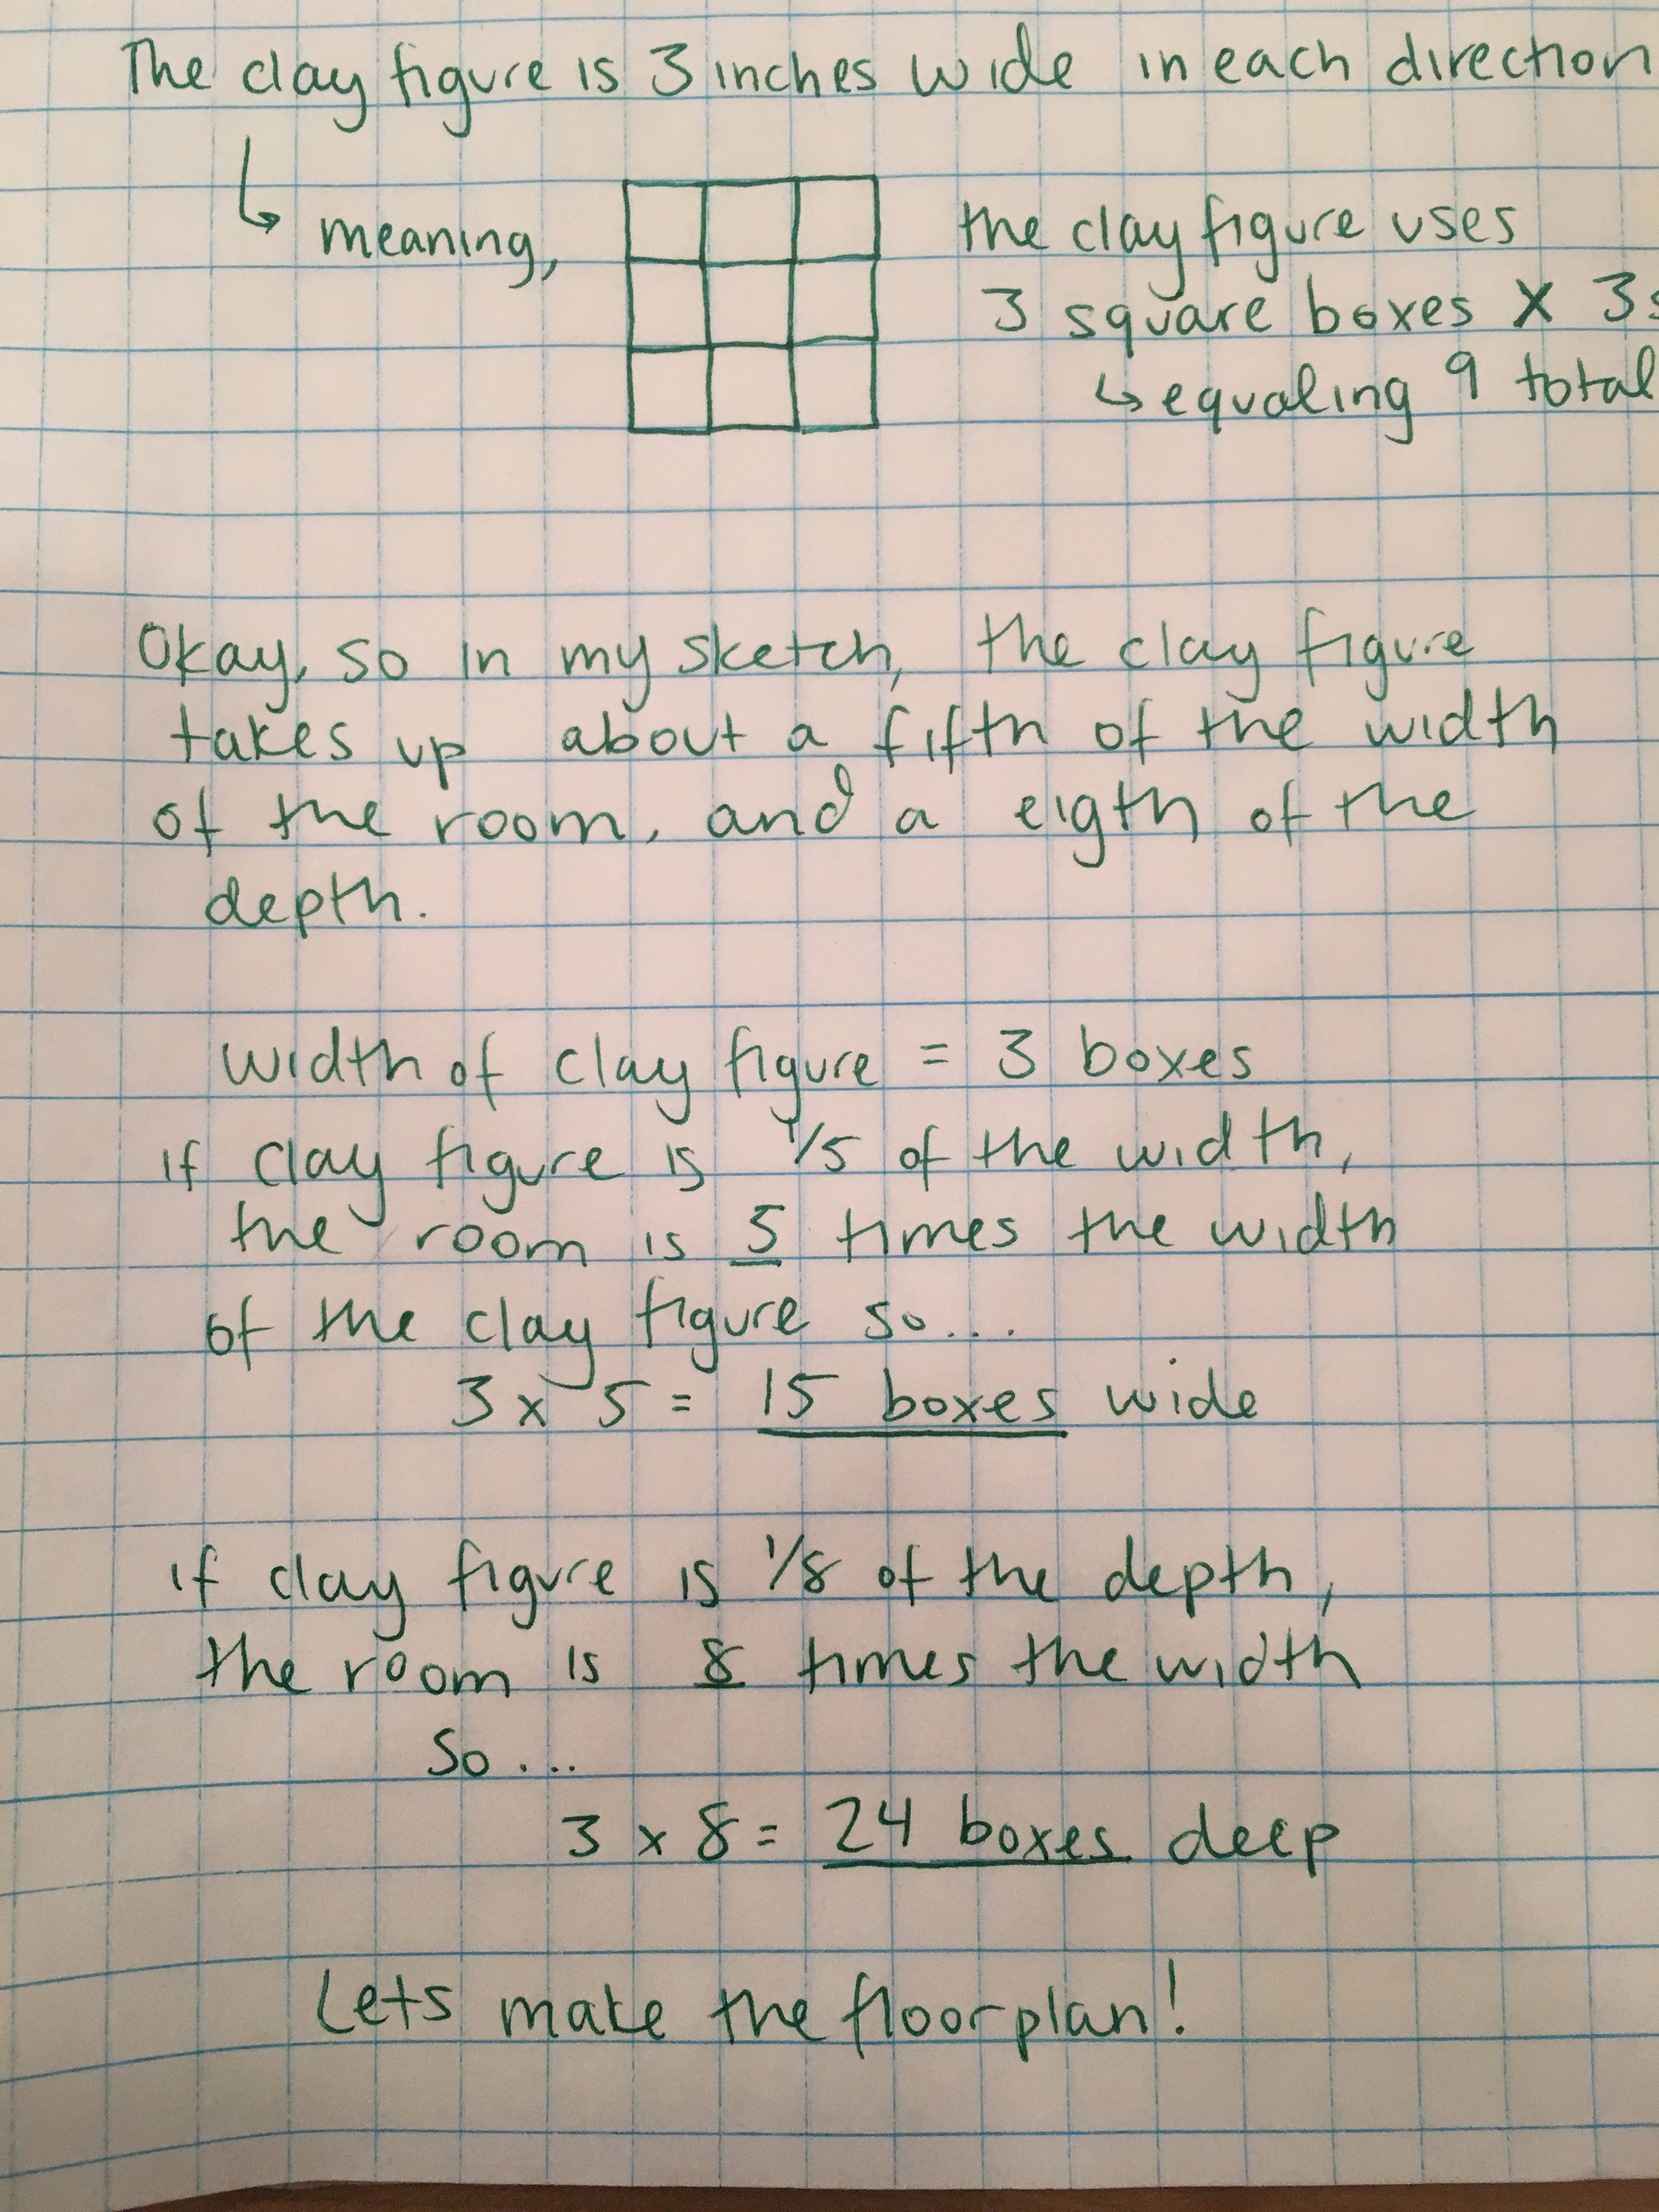 The clay figure is 3 inches wide in each direction
↳ meaning,
the clay figure uses
3 square boxes x 3
↳ equaling 9 total
Okay, so in my sketch, the clay figure
takes up about a fifth of the width
of the room, and a eigth of the
depth.
Width of clay figure = 3 boxes
If clay figure is 1/5 of the width,
the room is 5 times the width
of the clay figure so...
3 x 5 = 15 boxes wide
If clay figure is 1/8 of the depth,
the room is 8 times the width
So...
3 x 8 = 24 boxes deep
Lets make the floorplan!